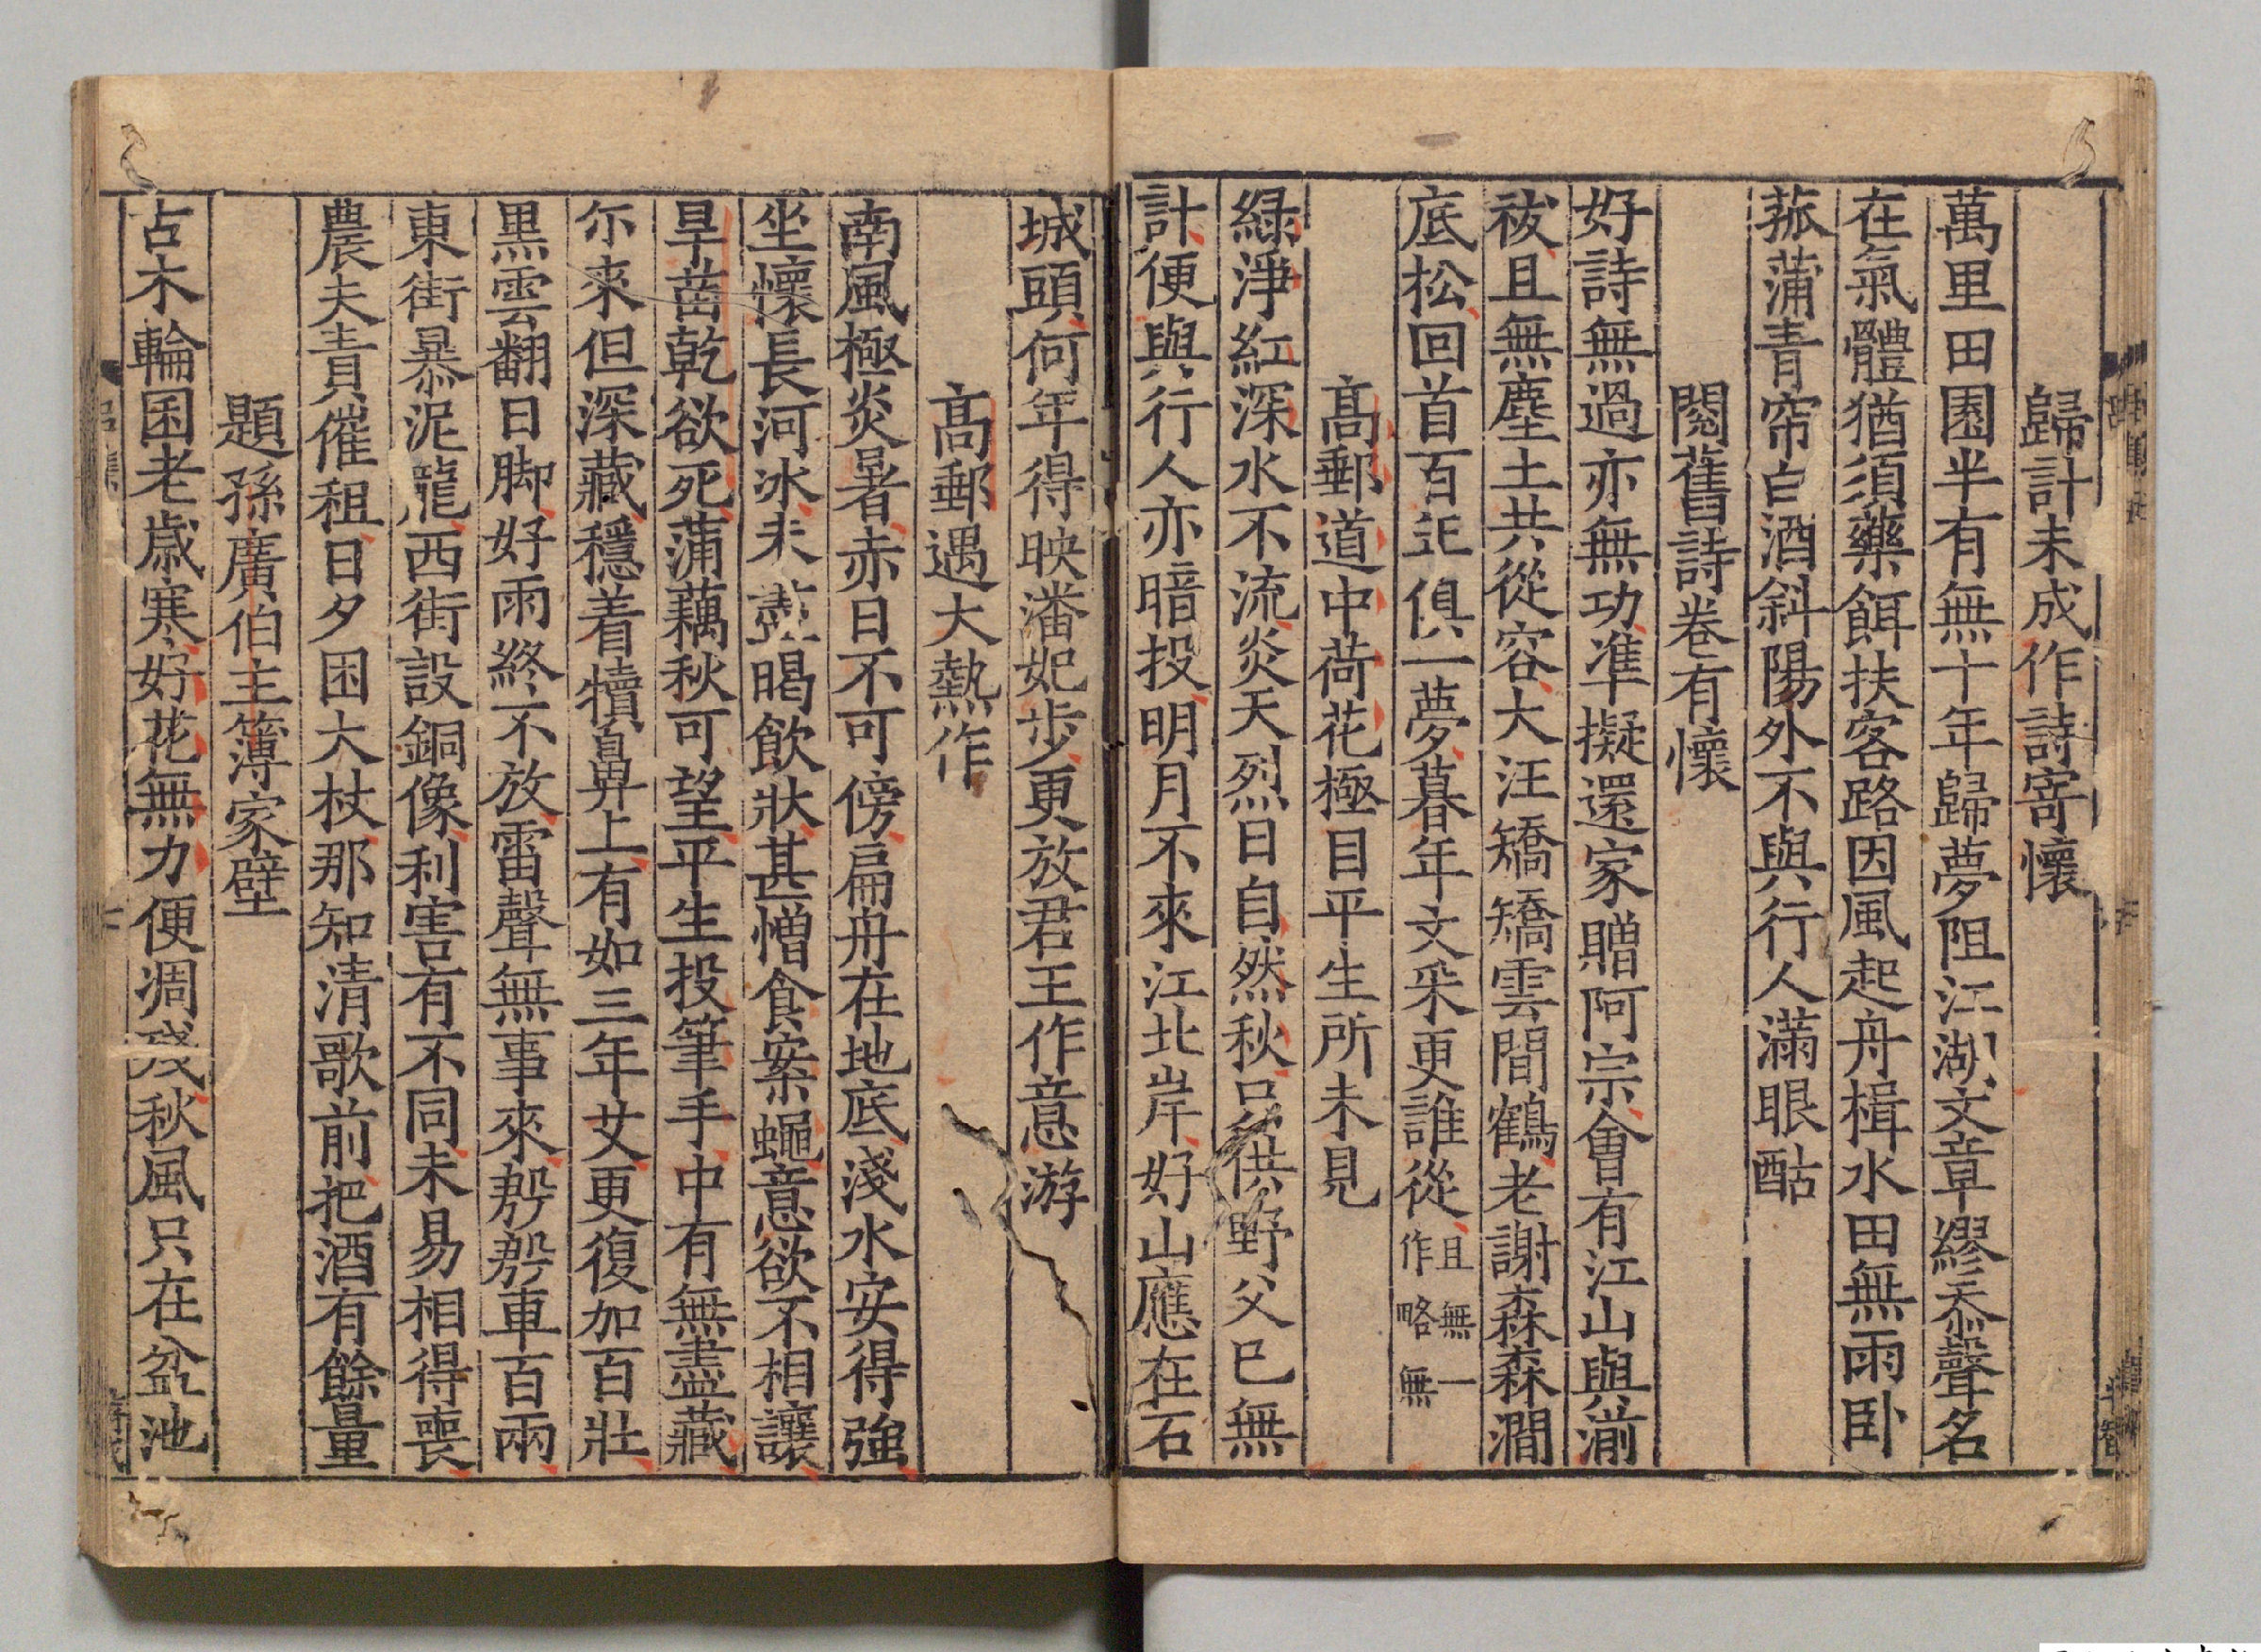 歸計未成作詩寄懷
萬里田園半有無十年歸夢阻江湖文章繆忝聲名
在氣體猶須藥餌扶客路因風起舟楫水田無雨卧
菰蒲青帘白酒斜陽外不與行人滿眼酤
閱舊詩卷有懷
好詩無過亦無功準擬還家贈阿宗會有江山與湔
祓且無塵土共從容大汪矯矯雲間鶴老謝森森澗
底松回首百𤴓俱一夢暮年文采更誰從且無一作略無
高郵道中荷花極目平生所未見
綠淨紅深水不流炎天烈日自然秋只供野父已無
計便與行人亦暗投明月不來江北岸好山應在石
城頭何年得映潘妃步更放君王作意游
高郵遇大熱作
南風極炎暑赤日不可傍扁舟在地底淺水安得強
坐懷長河冰未盡暍飲狀甚憎食案蠅意欲不相讓
旱苗乾欲死蒲藕秋可望平生投筆手中有無盡藏
尓來但深藏穩着犢鼻上有如三年艾更復加百壯
黒雲翻日脚好雨終不放雷聲無事來殷殷車百兩
東街暴泥龍西街設銅像利害有不同未易相得喪
農夫責催租日夕困大杖那知清歌前把酒有餘量
題孫廣伯主簿家壁
占木輪囷老歲寒好花無力便凋殘秋風只在盆池